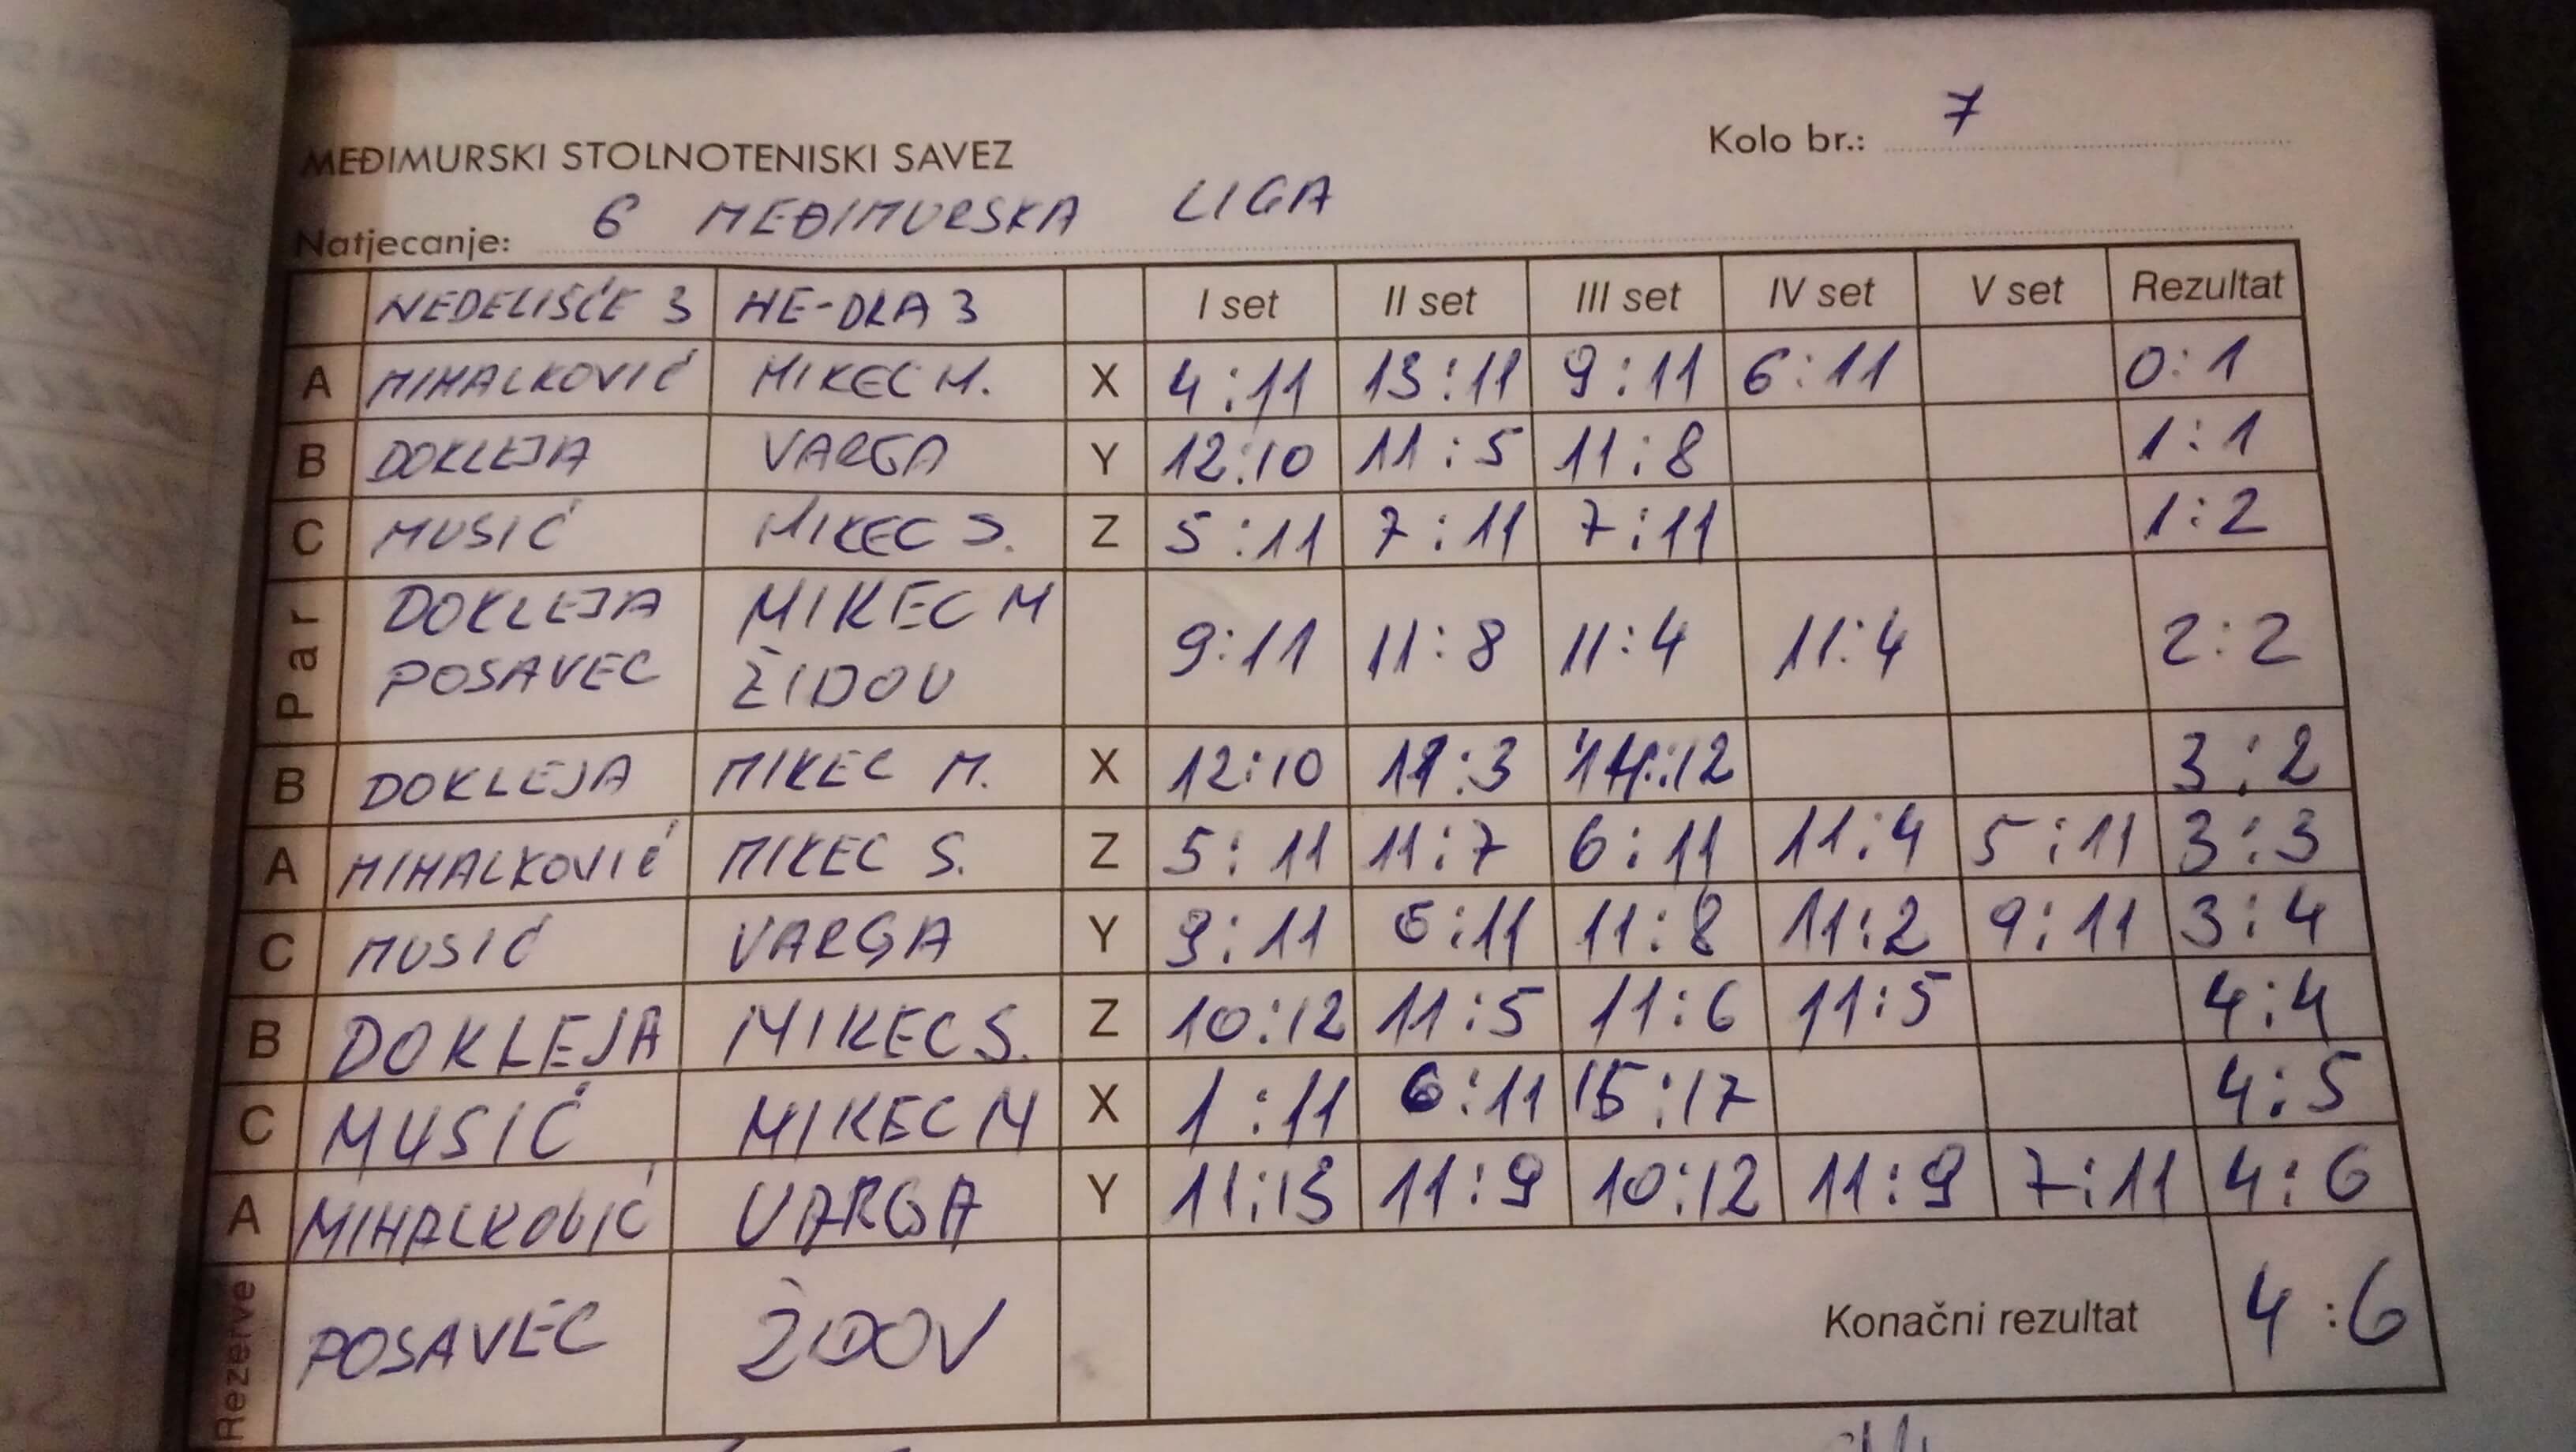 MEĐIMURSKI STOLNOTENISKI SAVEZ
Kolo br.: 7
Natjecanje: 6 MEĐIMURSKA LIGA
NEDELIŠĆE 3 HE-DRA 3 I set II set III set IV set V set Rezultat
A MIHALKOVIĆ MIKEC M. X 4:11 13:11 9:11 6:11 0:1
B DOKLEJA VARGA Y 12:10 11:5 11:8 1:1
C MUSIĆ MIKEC S. Z 5:11 7:11 7:11 1:2
Par DOKLEJA MIKEC M 9:11 11:8 11:4 11:4 2:2
POSAVEC ŽIDOV
B DOKLEJA MIKEC M. X 12:10 11:3 14:12 3:2
A MIHALKOVIĆ MIKEC S. Z 5:11 11:7 6:11 11:4 5:11 3:3
C MUSIĆ VARGA Y 9:11 6:11 11:8 11:2 9:11 3:4
B DOKLEJA MIKEC S. Z 10:12 11:5 11:6 11:5 4:4
C MUSIĆ MIKEC M X 1:11 6:11 15:17 4:5
A MIHALKOVIĆ VARGA Y 11:13 11:9 10:12 11:9 7:11 4:6
Rezerve POSAVEC ŽIDOV Konačni rezultat 4:6